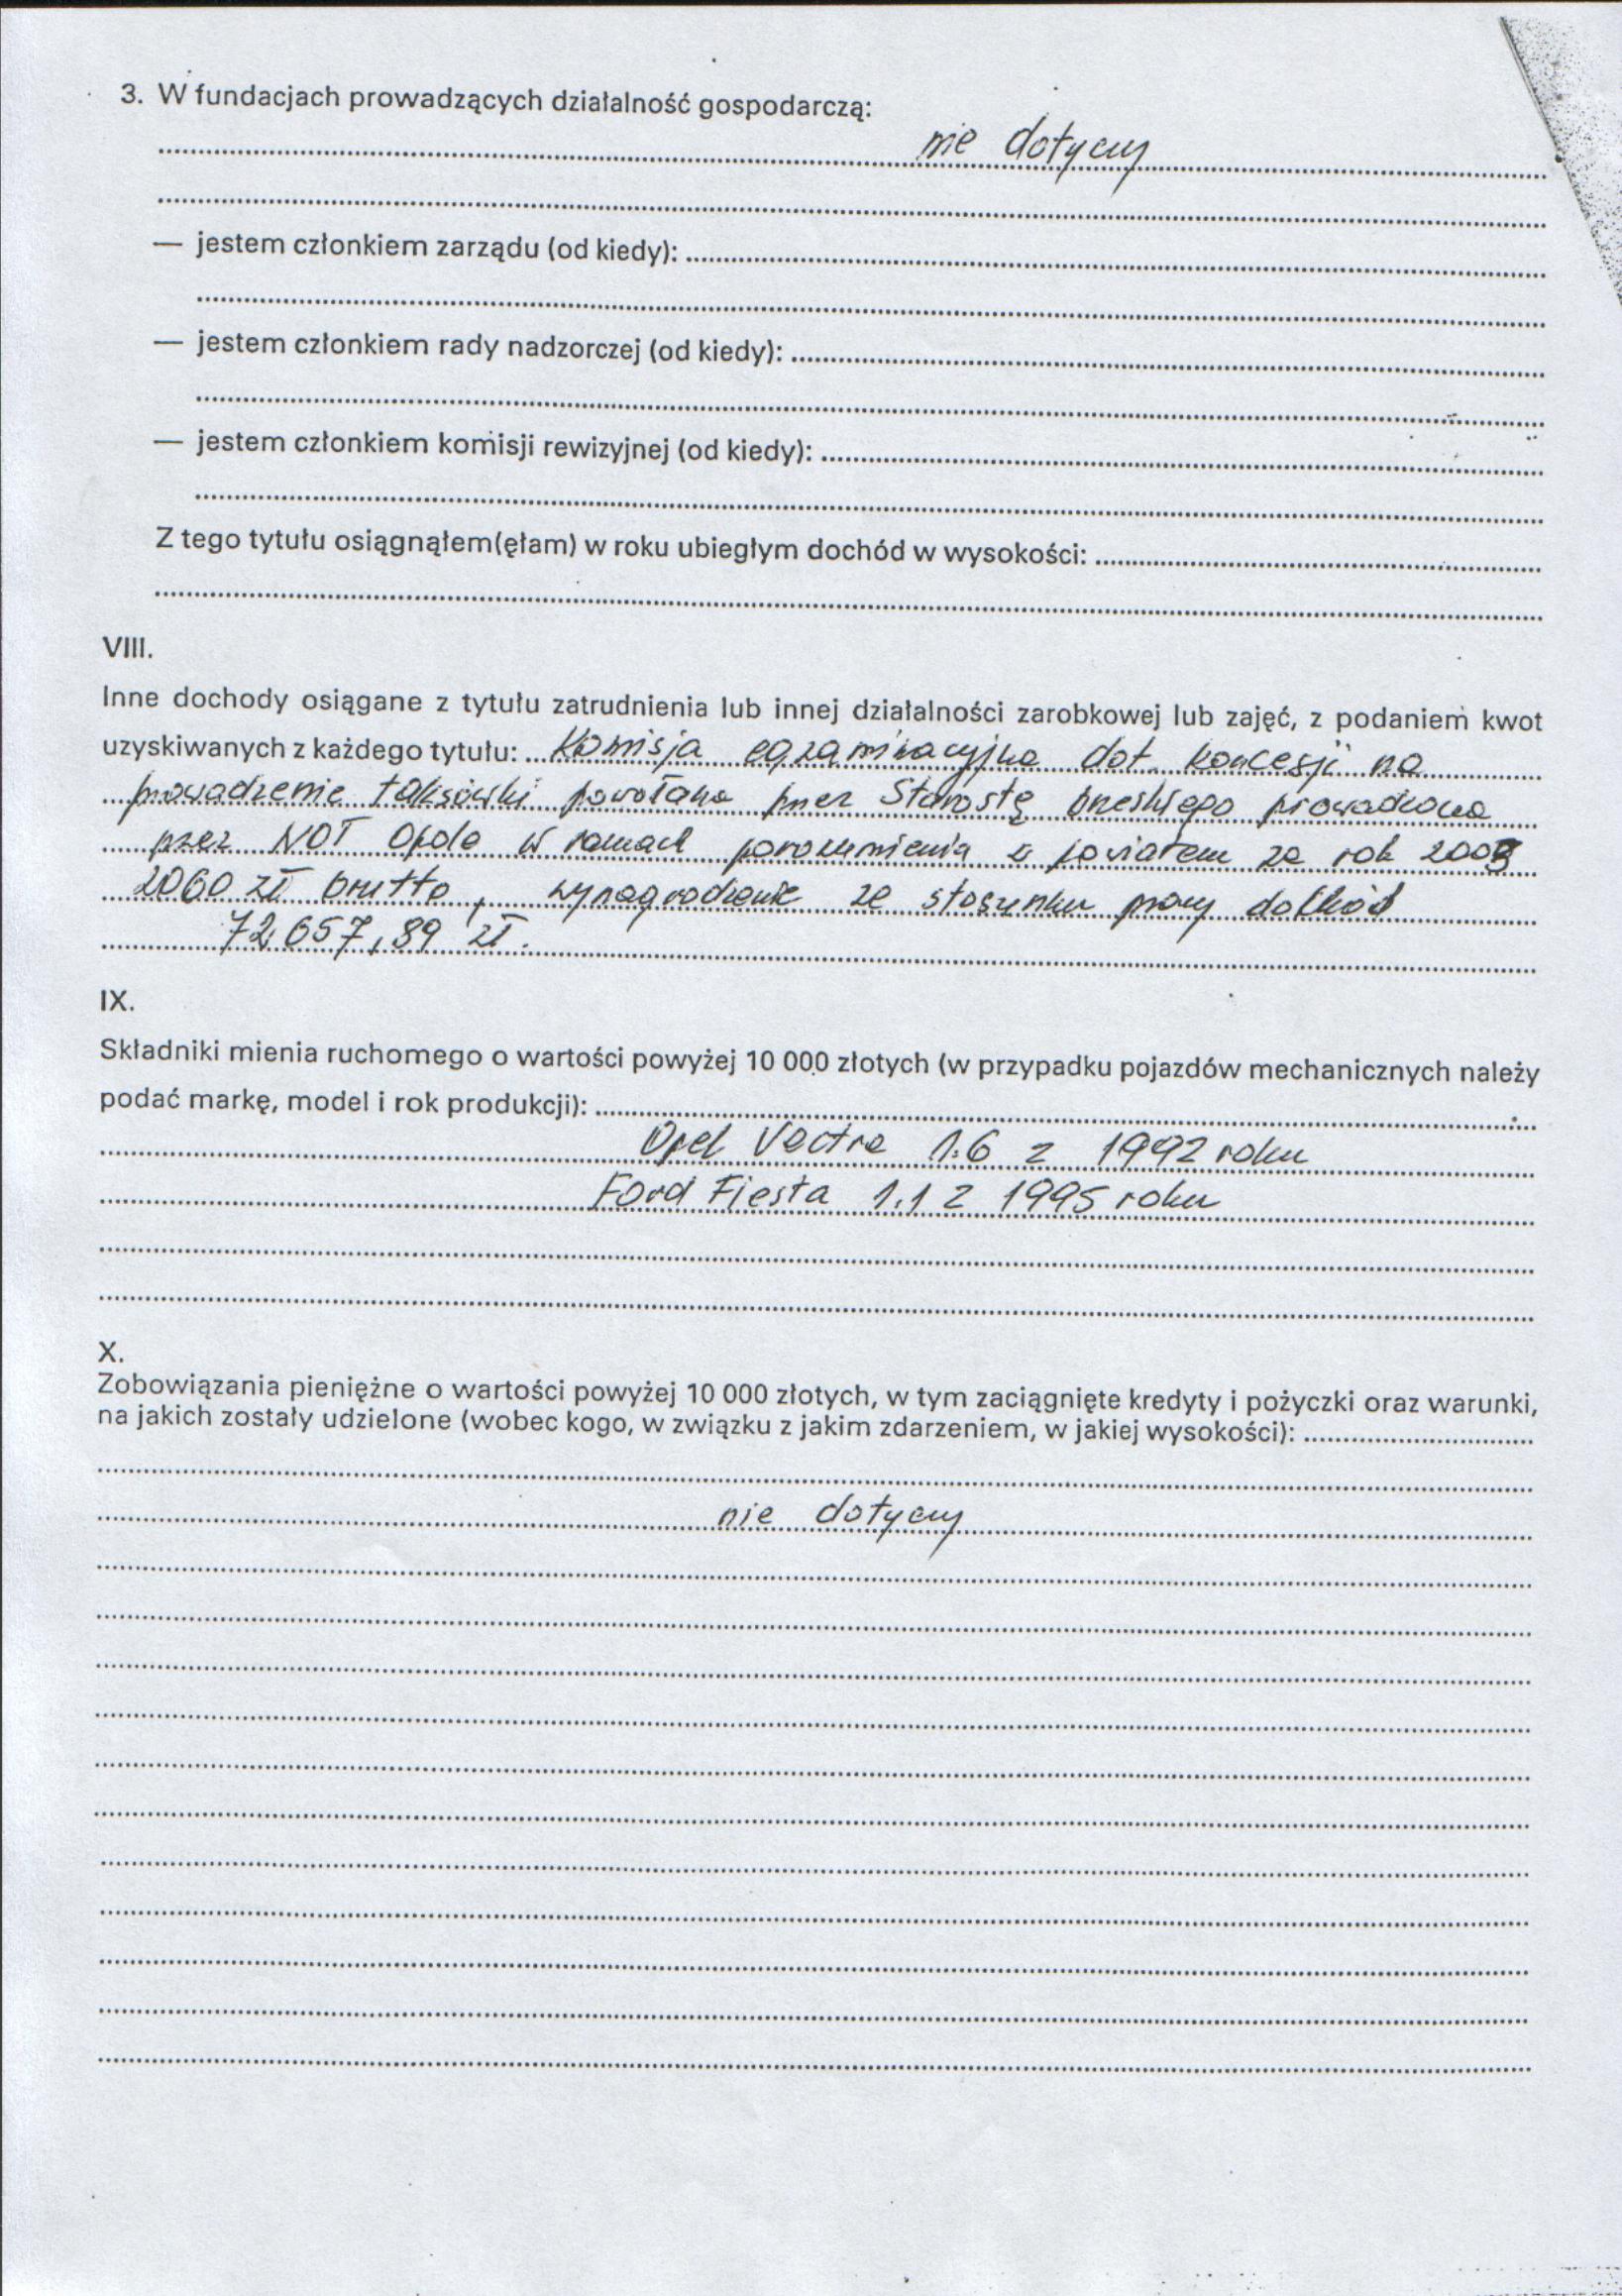 3. W fundacjach prowadzących działalność gospodarczą:
nie dotyczy
— jestem członkiem zarządu (od kiedy):
— jestem członkiem rady nadzorczej (od kiedy):
— jestem członkiem komisji rewizyjnej (od kiedy):
Z tego tytułu osiągnąłem(ęłam) w roku ubiegłym dochód w wysokości:
VIII.
Inne dochody osiągane z tytułu zatrudnienia lub innej działalności zarobkowej lub zajęć, z podaniem kwot
uzyskiwanych z każdego tytułu: Komisja egzaminacyjna dot. koncesji na
prowadzenie taksówki powołana przez Starostę brzeskiego prowadzona
przez NOT Opole w ramach porozumienia z powiatem za rok 2003
2060 zł brutto, wynagrodzenie ze stosunku pracy dochód
72.657,89 zł.
IX.
Składniki mienia ruchomego o wartości powyżej 10 000 złotych (w przypadku pojazdów mechanicznych należy
podać markę, model i rok produkcji):
Opel Vectra 1.6 z 1992 roku
Ford Fiesta 1.1 z 1995 roku
X.
Zobowiązania pieniężne o wartości powyżej 10 000 złotych, w tym zaciągnięte kredyty i pożyczki oraz warunki,
na jakich zostały udzielone (wobec kogo, w związku z jakim zdarzeniem, w jakiej wysokości):
nie dotyczy